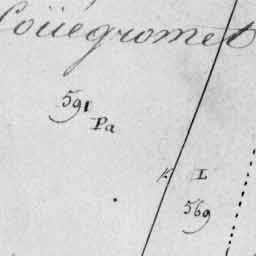 Coüégromet
591
Pa
L
569